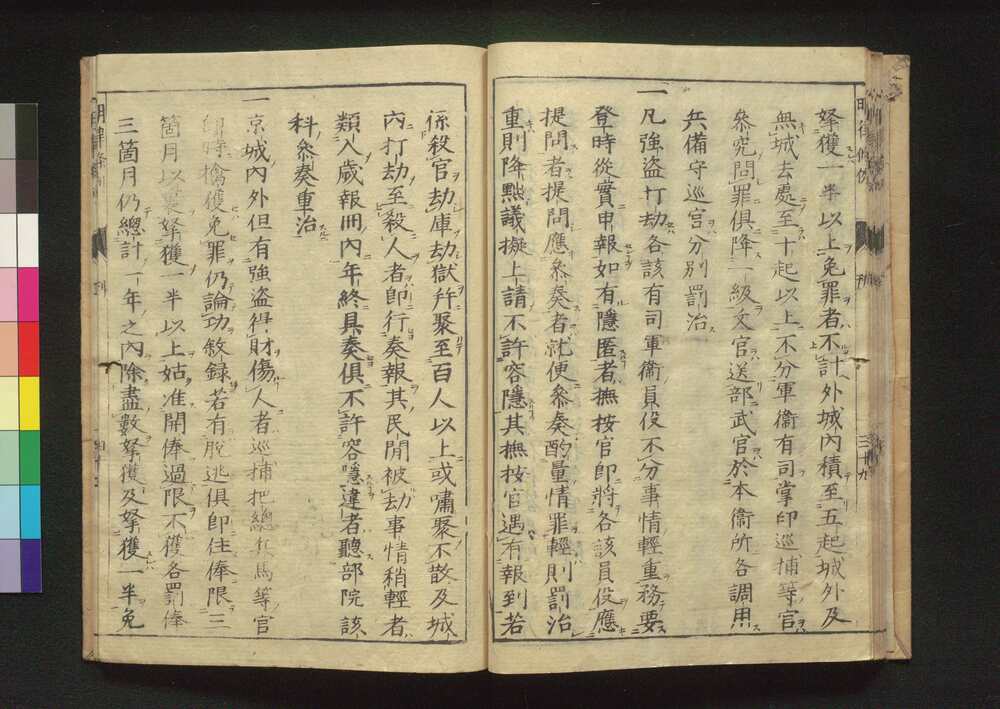 拏獲一半以上免罪者不計外城內積至五起城外及
無城去處至十起以上不分軍衞有司掌印巡捕等官
叅究問罪俱降一級文官送部武官於本衞所各調用
兵備守巡官分別罰治
一凡強盜打劫各該有司軍衞員役不分事情輕重務要
登時從實申報如有隱匿者撫按官即將各該員役應
提問者提問應叅奏者就便叅奏酌量情罪輕則罰治
重則降黜議擬上請不許容隱其撫按官遇有報到若
係殺官劫庫劫獄并聚至百人以上或嘯聚不散及城
內打劫至殺人者即行奏報其民間被劫事情稍輕者
類入歲報冊內年終具奏俱不許容隱違者聽部院該
科叅奏重治
一京城內外但有強盜得財傷人者巡捕把總兵馬等官
即時擒獲免罪仍論功敘錄若有脫逃俱即住俸限三
箇月以裏拏獲一半以上姑准開俸過限不獲各罰俸
三箇月仍總計一年之內除盡數拏獲及拏獲一半免
明律條例
刑
三十九